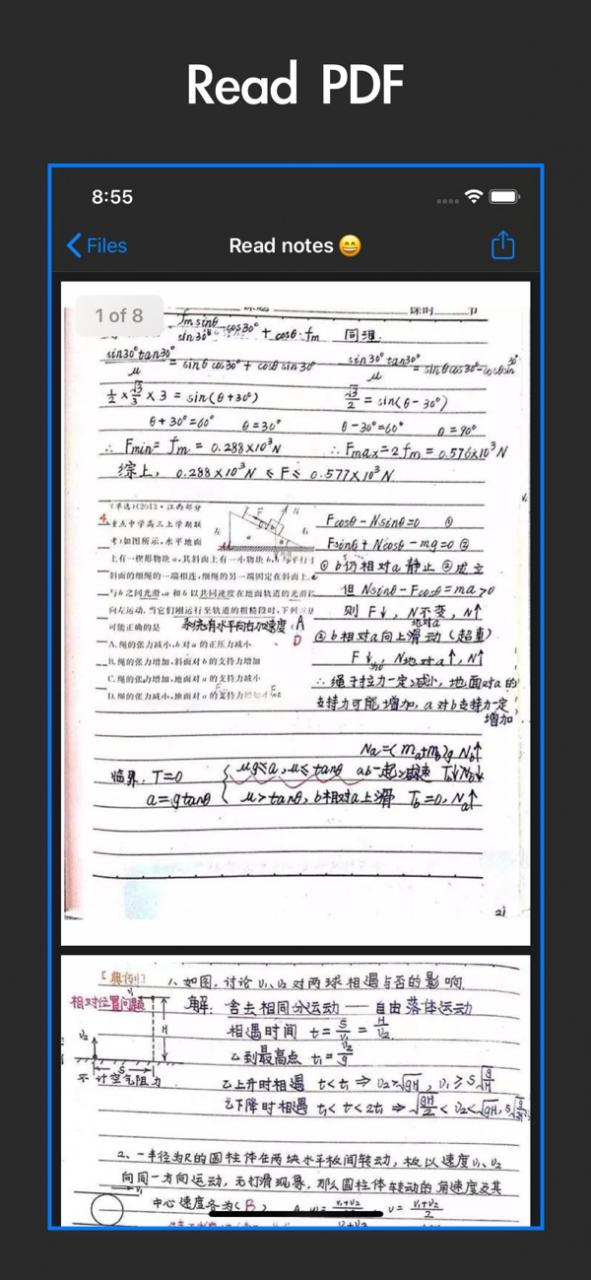 Read PDF
8:55
Files
Read notes 😄
1 of 8
课时 节
sin30° -cos30° + cosθ·fm 同理:
sin30°tan30° / μ = sinθ cos30° + cosθ sin30°
sin30°tan30° / μ = sinθcos30° - cosθsin30°
1/2 × √3/3 × 3 = sin(θ+30°)
√3/2 = sin(θ-30°)
θ+30°=60° θ=30° θ-30°=60° θ=90°
∴ Fmin = fm = 0.288×10³N ∴ Fmax=2fm = 0.576×10³N
综上, 0.288×10³N ≤ F ≤ 0.577×10³N
4.
(单选)(2013·江西部分
重点中学高三上学期联
考)如图所示,水平地面
上有一楔形物块a,其斜面上有一小物块b,b与平行于
斜面的细绳的一端相连,细绳的另一端固定在斜面上.a
与b之间光滑,a和b以共同速度在地面轨道的光滑段
向左运动.当它们刚运行至轨道的粗糙段时,下列
可能正确的是
系统有水平向右加速度 (A
D
A.绳的张力减小,b对a的正压力减小
B.绳的张力增加,斜面对b的支持力增加
C.绳的张力减小,地面对a的支持力增加
D.绳的张力减小,地面对a的支持力增加
Fcosθ-Nsinθ=0 ①
Fsinθ+Ncosθ-mg=0 ②
① b仍相对a静止 ②成立
但 Nsinθ-Fcosθ=ma>0
则 F↓, N不变, N↑
地对a
② b相对a向上滑动 (超重)
F↓, N地对a↑, N↑
∴ 绳子拉力一定减小, 地面对a的
支持力可能增加, a对b支持力一定
增加
Na=(ma+mb)g Nb↑
临界. T=0 μg≤a, μ≤tanθ ab一起减速 T↓Nb↓
a=gtanθ μ>tanθ, b相对a上滑 Tb=0, Na↑
21
[典例1] 1、如图, 讨论 v₁、v₂ 对两球相遇与否的影响.
相对位置问题
v₁
H
v₂
S
不计空气阻力
解: 舍去相同分运动 —— 自由落体运动
相遇时间 t=S/v₁=H/v₂
乙到最高点 t₁=v₂/g
乙上升时相遇 t<t₁ ⇒ v₂>√gH, v₁>S√g/H
乙下降时相遇 t₁<t<2t₁ ⇒ √gH/2<v₂<√gH, S√g/2H
2、一半径为R的圆柱体在两块水平板间转动, 板以速度v₁、v₂
向同一方向运动, 无打滑现象, 那么圆柱体转动的角速度及其
中心速度各为(B) v=v₁+v₂/2